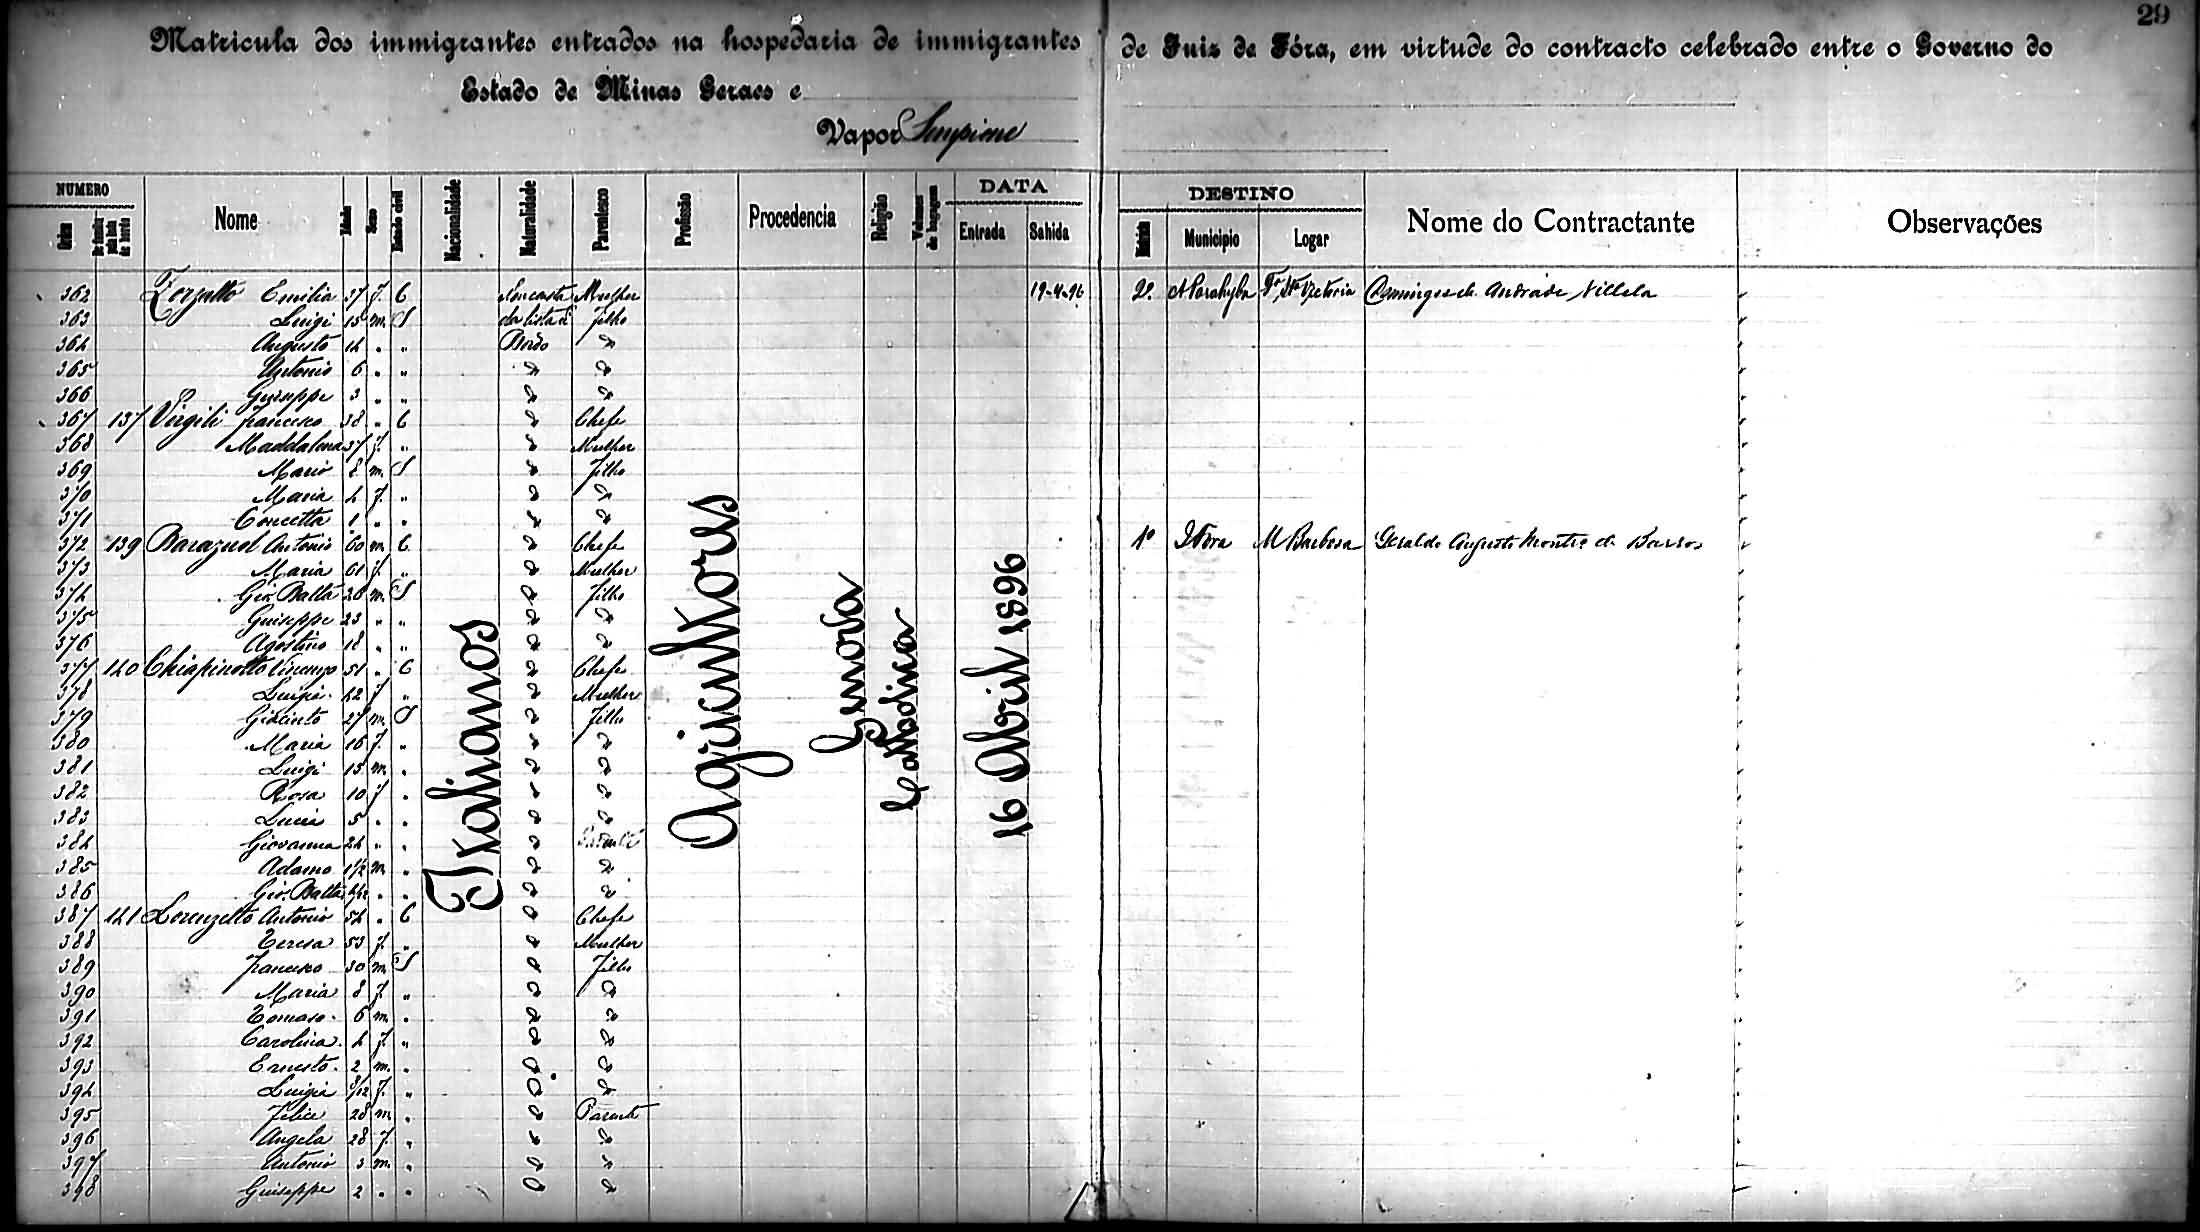 29
Matricula dos immigrantes entrados na hospedaria de immigrantes de Juiz de Fóra, em virtude do contracto celebrado entre o Governo do
Estado de Minas Geraes e
Vapor Sempione
NUMERO DATA DESTINO
Ordem Nome Idade Sexo Estado civil Nacionalidade Naturalidade Parentesco Profissão Procedencia Religião Volumes de bagagem Entrada Sahida Municipio Logar Nome do Contractante Observações
362 Zorzatto Emilia 37 f. C Non consta Mulher 19-4-96 2º Parahyba Victoria Domingos de Andrade Villela
363 Luigi 15 m. S da lista d Filho
364 Augusto 14 " " Bordo "
365 Antonio 6 " " " "
366 Giuseppe 3 " " " "
367 137 Virgili Francesco 38 " C " Chefe
368 Maddalena 37 f. " " Mulher
369 Mario 8 m. S " Filho
370 Maria 4 f. " " "
371 Concetta 1 " " " "
372 139 Barazuol Antonio 60 m. C " Chefe 1º J Fora M Barbosa Geraldo Augusto de Barros
373 Maria 61 f. " " Mulher
374 Gio. Batta 26 m. S " Filho
375 Guiseppe 23 " " " "
376 Agostino 18 " " " "
377 140 Chiapinotto Vincenzo 51 " C " Chefe
378 Luigia 42 f " " Mulher
379 Giacinto 27 m. S " Filho
380 Maria 16 f. " " "
381 Luigi 15 m. " " "
382 Rosa 10 f " " "
383 Lucia 5 " " " "
384 Giovanna 24 " " " Parente
385 Adamo 1 1/2 m. " " "
386 Gio. Batta " " " "
387 141 Lorenzetto Antonio 54 " C " Chefe
388 Teresa 53 f. " " Mulher
389 Francesco 30 m. S " Filho
390 Maria 8 f. " " "
391 Tomaso 6 m. " " "
392 Carolina 4 f. " " "
393 Ernesto 2 m. " " "
394 Luigia 8/12 f. " " "
395 Felice 28 m " " Parente
396 Angela 28 f. " " "
397 Antonio 3 m. " " "
398 Guiseppe 2 " " " "
Italianos
Agricultores
Genova
Catholica
16 Abril 1896